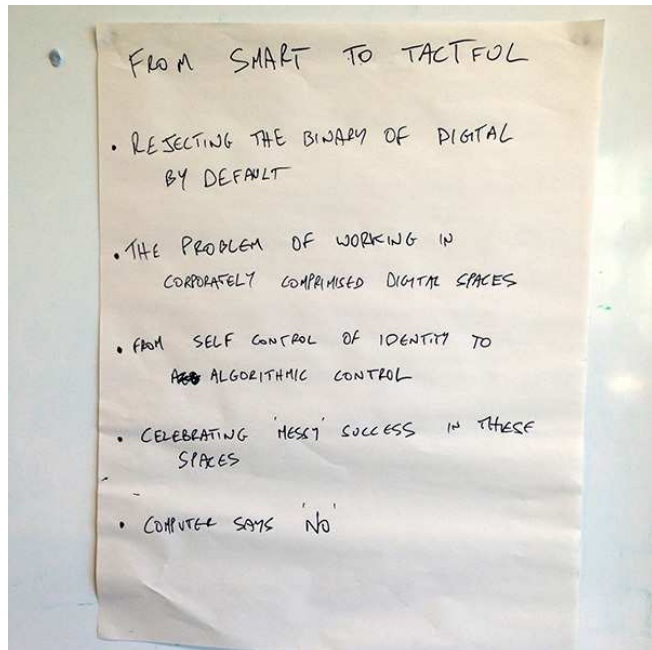 FROM SMART TO TACTFUL
• REJECTING THE BINARY OF DIGITAL
BY DEFAULT
• THE PROBLEM OF WORKING IN
CORPORATELY COMPRIMISED DIGITAL SPACES
• FROM SELF CONTROL OF IDENTITY TO
ALGORITHMIC CONTROL
• CELEBRATING 'MESSY' SUCCESS IN THESE
SPACES
• COMPUTER SAYS 'NO'